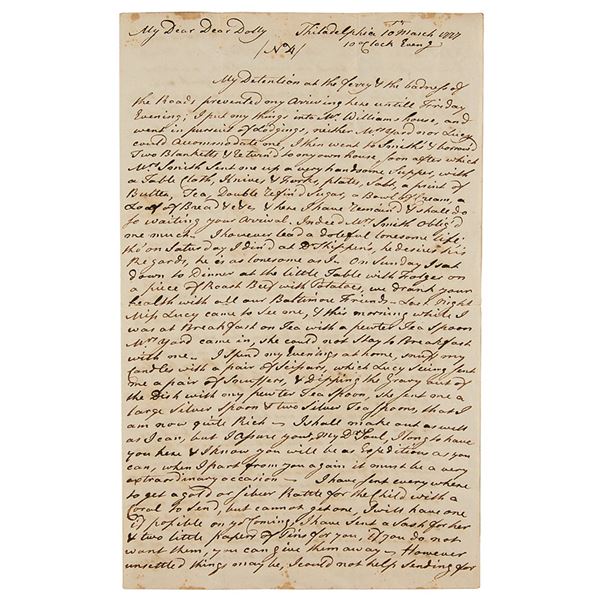 My Dear Dear Dolly Philadelphia 10th March 1777
(No 4) 10 oClock Eveng
My Detention at the ferry & the badness of
the Roads prevented my Arriving here untill Friday
Evening; I put my things into Mr. Williams house, and
went in pursuit of Lodgings, neither Mrs Yard nor Lucy
could Accommodate me, I then went to Smiths & borrow'd
Two Blanketts & Return'd to my own house, soon after which
Mrs Smith sent me up a very handsome Supper, with
a Table Cloth, Knives & Forks, plates, Salt, a print of
Butter, Tea, Double Refin'd Sugar, a Bowl of Cream, a
Loaf of Bread &c &c & here I have Remain'd & shall do
so waiting your Arrival. Indeed Mrs Smith Oblig'd
me much - I however lead a doleful lonesome life;
tho' on Saturday I din'd at Dr Shippen's, he desires his
Regards, he is as lonesome as I - On Sunday I sat
down to Dinner at the little Table with Folger on
a piece of Roast Beef with Potatoes, we drank your
health with all our Baltimore Friends - Last Night
Miss Lucy came to see me, & this morning while I
was at Breakfast on Tea with a pewter Tea Spoon
Mrs Yard came in, she could not Stay to Breakfast
with me - I spend my Evenings at home, snuff my
Candles with a pair of Scissars, which Lucy Seeing sent
me a pair of Snuffers, & dipping the Gravy out of
the Dish with my pewter Tea Spoon, she sent me a
large Silver Spoon & two Silver Tea Spoons, that I
am now quite Rich - I shall make out as well
as I can, but I Assure you, My Dr Soul, I long to have
you here & I know you will be as Expeditious as you
can, when I part from you again it must be a very
extraordinary occasion - I have sent every where
to get a gold or silver Rattle for the Child with a
Coral to send, but cannot get one, I will have one
if possible on yr Coming, I have sent a Sash for her
& two little Papers of Pins for you, if you do not
want them, you can give them away - However
unsettled things may be, I could not help Sending for